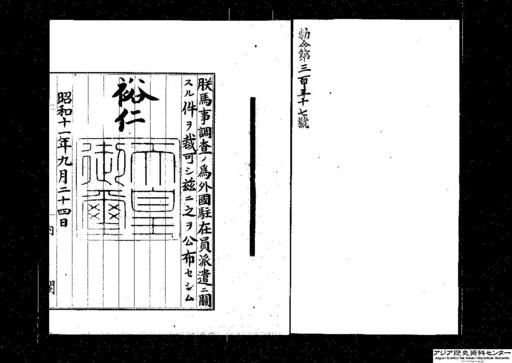 勅令第三百五十七號
朕馬事調査ノ爲外國駐在員派遣ニ關
スル件ヲ裁可シ茲ニ之ヲ公布セシム
裕仁
天皇
御璽
昭和十一年九月二十四日
内
閣
アジア歴史資料センター
Japan Center for Asian Historical Records